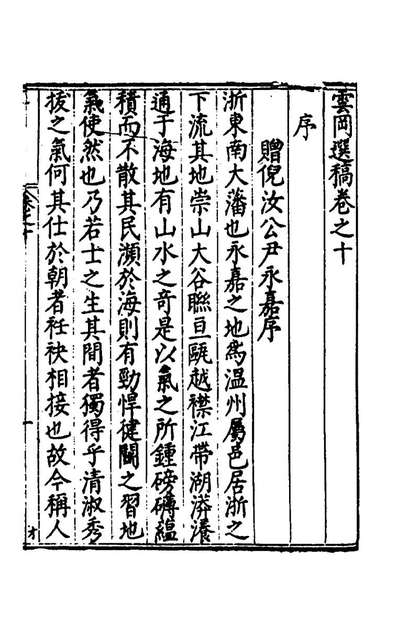 雲岡選稿卷之十
序
贈倪汝公尹永嘉序
浙東南大藩也永嘉之地為溫州屬邑居浙之
下流其地崇山大谷聯亘甌越襟江帶湖漭瀁
通于海地有山水之奇是以氣之所鍾磅礴蘊
積而不散其民瀕於海則有勁悍健鬭之習地
氣使然也乃若士之生其間者獨得乎清淑秀
拔之氣何其仕於朝者衽袂相接也故今稱人